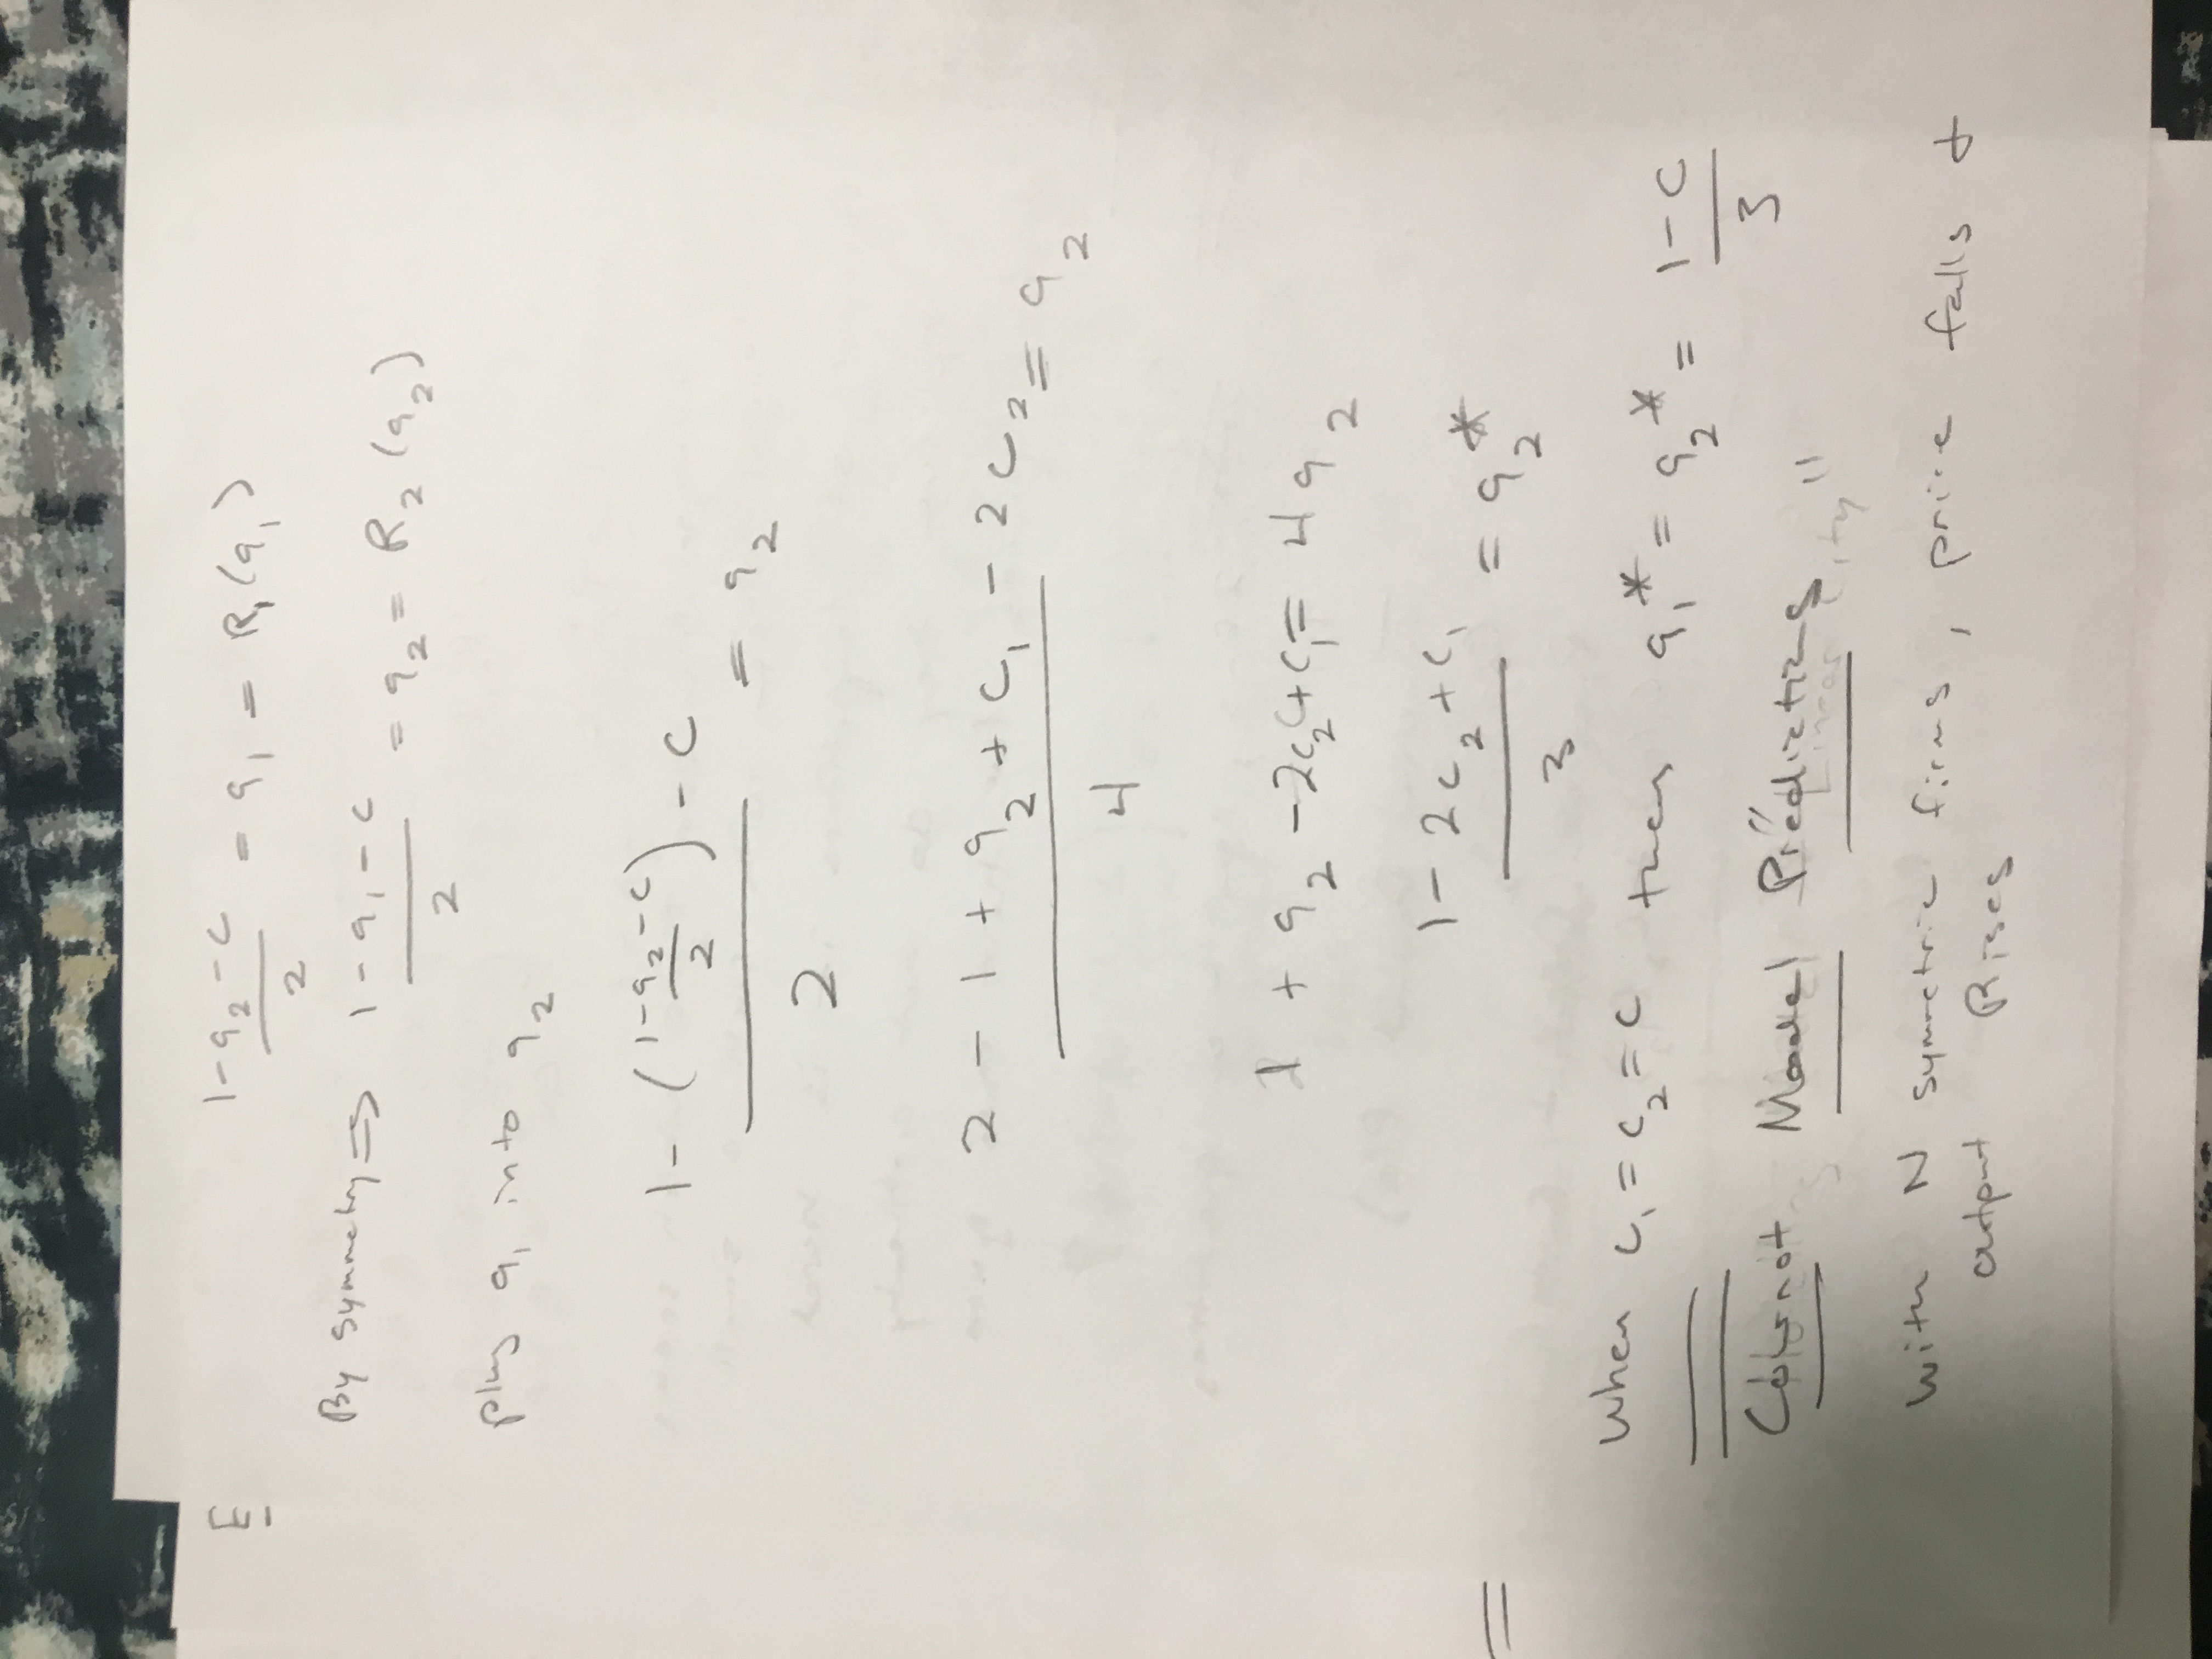 E
(1-q₂-c)/2 = q₁ = R₁(q₁)
By symmetry ⇒ (1-q₁-c)/2 = q₂ = R₂(q₂)
plug q₁ into q₂
(1-((1-q₂-c)/2)-c)/2 = q₂
(2-1+q₂+c₁-2c₂)/4 = q₂
1+q₂-2c₂+c₁=4q₂
(1-2c₂+c₁)/3 = q₂*
=
When c₁=c₂=c then q₁*=q₂*=(1-c)/3
Cournot Model Predictions
"Linear City"
with N symmetric firms, price falls &
output Rises